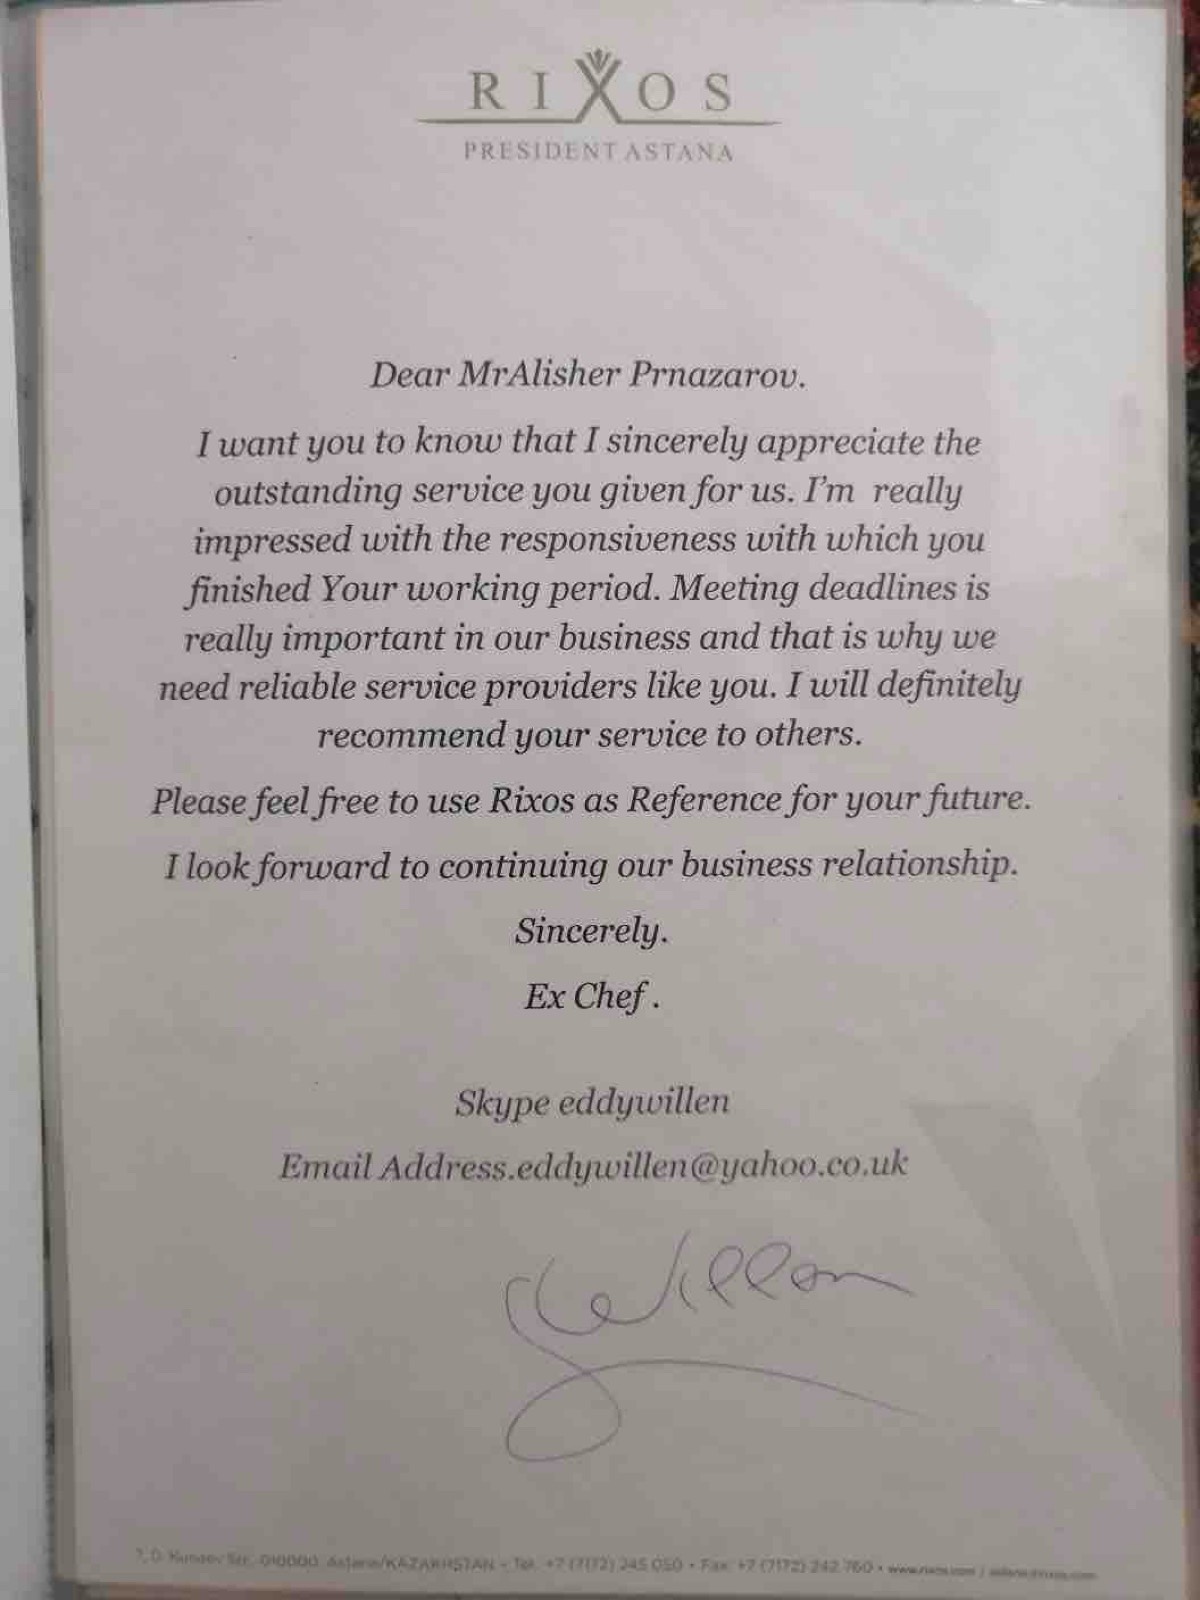 RIXOS
PRESIDENT ASTANA
Dear MrAlisher Prnazarov.
I want you to know that I sincerely appreciate the
outstanding service you given for us. I'm really
impressed with the responsiveness with which you
finished Your working period. Meeting deadlines is
really important in our business and that is why we
need reliable service providers like you. I will definitely
recommend your service to others.
Please feel free to use Rixos as Reference for your future.
I look forward to continuing our business relationship.
Sincerely.
Ex Chef .
Skype eddywillen
Email Address.eddywillen@yahoo.co.uk
7, D. Kunaev Str., 010000, Astana/KAZAKHSTAN • Tel. +7 (7172) 245 050 • Fax: +7 (7172) 242 760 • www.rixos.com /